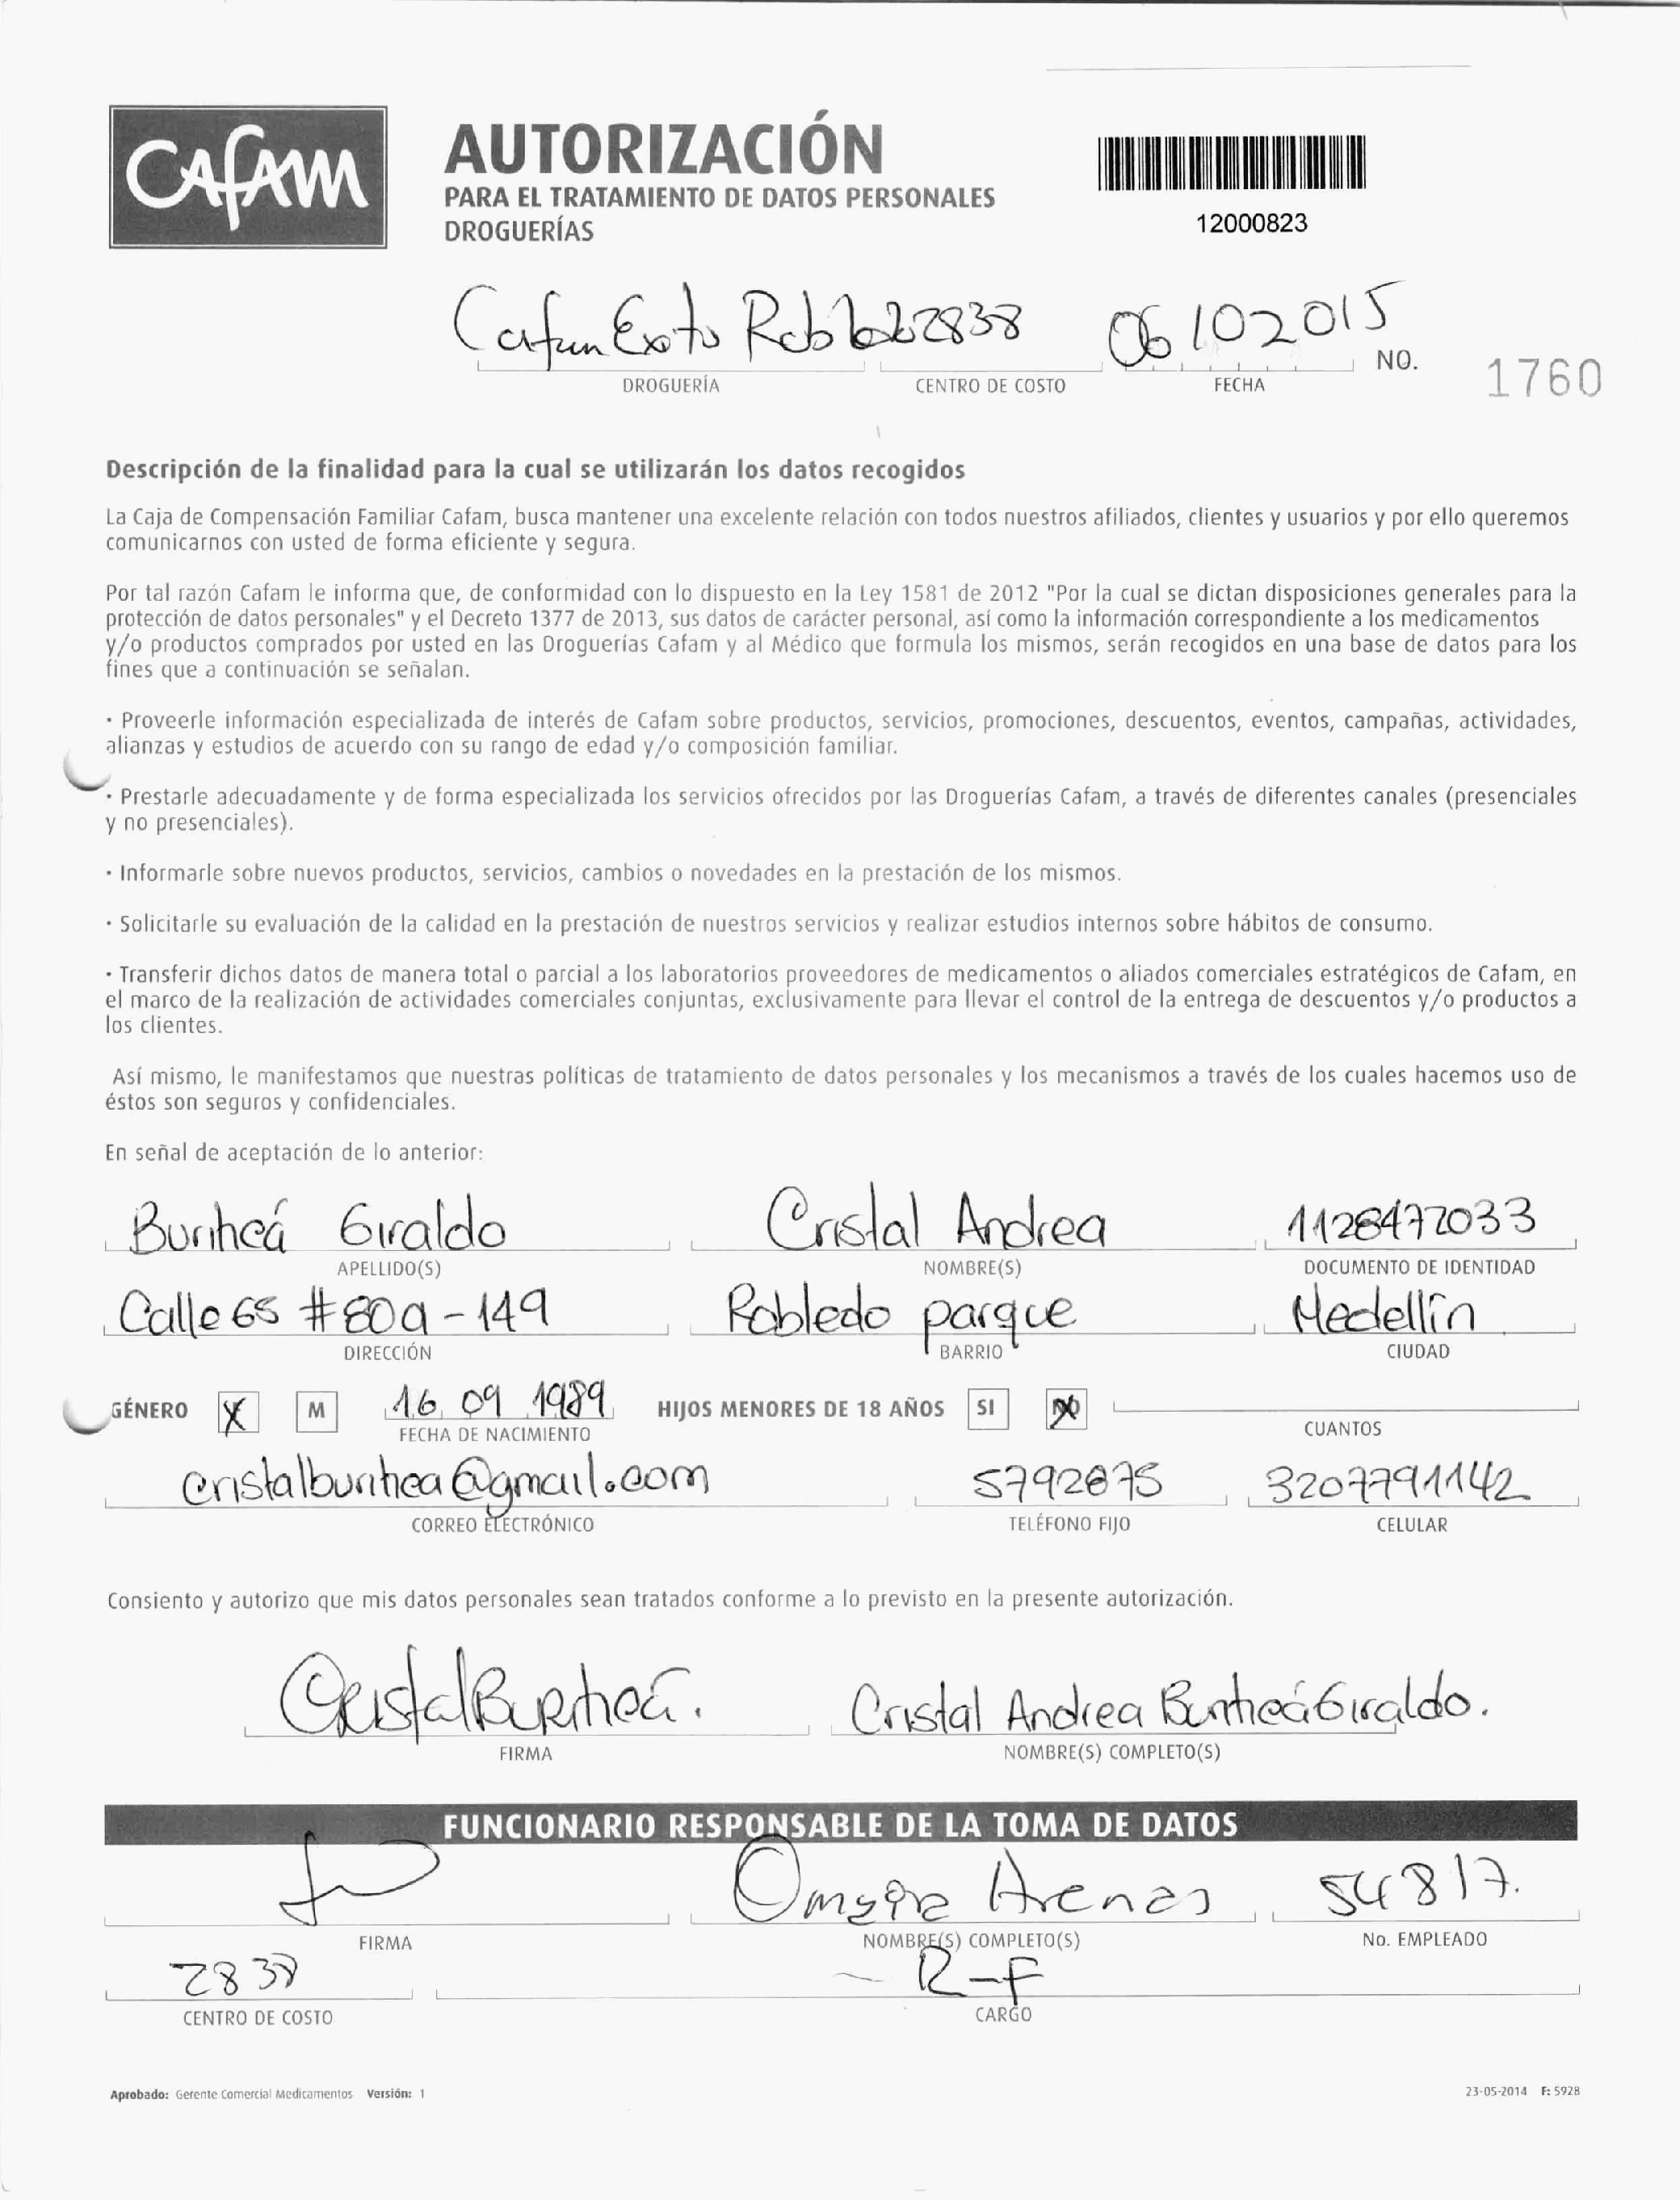 CAFAM
AUTORIZACIÓN
PARA EL TRATAMIENTO DE DATOS PERSONALES
DROGUERÍAS
12000823
2838 06 10 2015
DROGUERÍA CENTRO DE COSTO FECHA NO. 1760
Descripción de la finalidad para la cual se utilizarán los datos recogidos
La Caja de Compensación Familiar Cafam, busca mantener una excelente relación con todos nuestros afiliados, clientes y usuarios y por ello queremos
comunicarnos con usted de forma eficiente y segura.
Por tal razón Cafam le informa que, de conformidad con lo dispuesto en la Ley 1581 de 2012 "Por la cual se dictan disposiciones generales para la
protección de datos personales" y el Decreto 1377 de 2013, sus datos de carácter personal, así como la información correspondiente a los medicamentos
y/o productos comprados por usted en las Droguerías Cafam y al Médico que formula los mismos, serán recogidos en una base de datos para los
fines que a continuación se señalan.
· Proveerle información especializada de interés de Cafam sobre productos, servicios, promociones, descuentos, eventos, campañas, actividades,
alianzas y estudios de acuerdo con su rango de edad y/o composición familiar.
· Prestarle adecuadamente y de forma especializada los servicios ofrecidos por las Droguerías Cafam, a través de diferentes canales (presenciales
y no presenciales).
· Informarle sobre nuevos productos, servicios, cambios o novedades en la prestación de los mismos.
· Solicitarle su evaluación de la calidad en la prestación de nuestros servicios y realizar estudios internos sobre hábitos de consumo.
· Transferir dichos datos de manera total o parcial a los laboratorios proveedores de medicamentos o aliados comerciales estratégicos de Cafam, en
el marco de la realización de actividades comerciales conjuntas, exclusivamente para llevar el control de la entrega de descuentos y/o productos a
los clientes.
Así mismo, le manifestamos que nuestras políticas de tratamiento de datos personales y los mecanismos a través de los cuales hacemos uso de
éstos son seguros y confidenciales.
En señal de aceptación de lo anterior:
Buriticá Giraldo Cristal Andrea 1128472033
APELLIDO(S) NOMBRE(S) DOCUMENTO DE IDENTIDAD
Calle 65 #80a-149 Robledo parque Medellín
DIRECCIÓN BARRIO CIUDAD
GÉNERO X M 16 09 1989 HIJOS MENORES DE 18 AÑOS SI NO
FECHA DE NACIMIENTO CUANTOS
cristalburitica@gmail.com 5792875 3207791142
CORREO ELECTRÓNICO TELÉFONO FIJO CELULAR
Consiento y autorizo que mis datos personales sean tratados conforme a lo previsto en la presente autorización.
Cristal Buriticá. Cristal Andrea Buriticá Giraldo.
FIRMA NOMBRE(S) COMPLETO(S)
FUNCIONARIO RESPONSABLE DE LA TOMA DE DATOS
Arenas 54817.
FIRMA NOMBRE(S) COMPLETO(S) No. EMPLEADO
2838 R-F
CENTRO DE COSTO CARGO
Aprobado: Gerente Comercial Medicamentos Versión: 1 23-05-2014 F: 5928